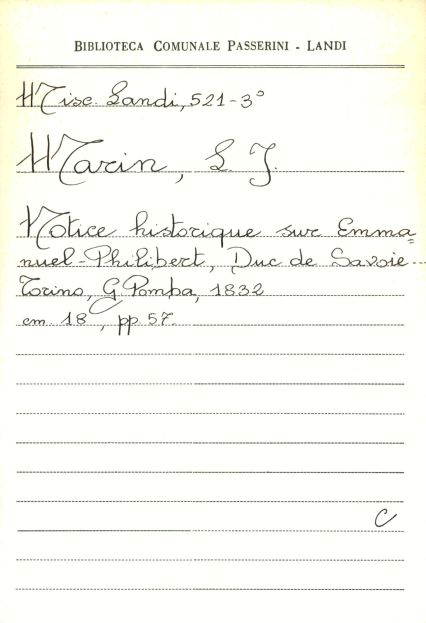 BIBLIOTECA COMUNALE PASSERINI - LANDI
Misc. Landi, 521-3°
Marin, L. J.
Notice historique sur Emma=
nuel-Philibert, Duc de Savoie-
Torino, G. Pomba, 1832
cm. 18, pp 57.
C